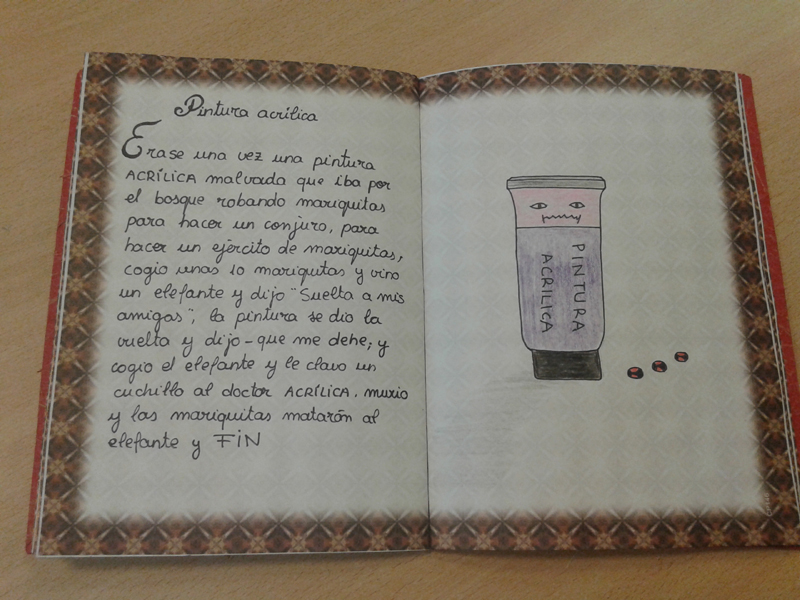 Pintura acrílica
Erase una vez una pintura
ACRÍLICA malvada que iba por
el bosque robando mariquitas
para hacer un conjuro, para
hacer un ejército de mariquitas,
cogio unas 10 mariquitas y vino
un elefante y dijo "Suelta a mis
amigas", la pintura se dio la
vuelta y dijo - que me dehe; y
cogio el elefante y le clavo un
cuchillo al doctor ACRÍLICA. murio
y las mariquitas matarón al
elefante y FiN
PINTURA
ACRILICA